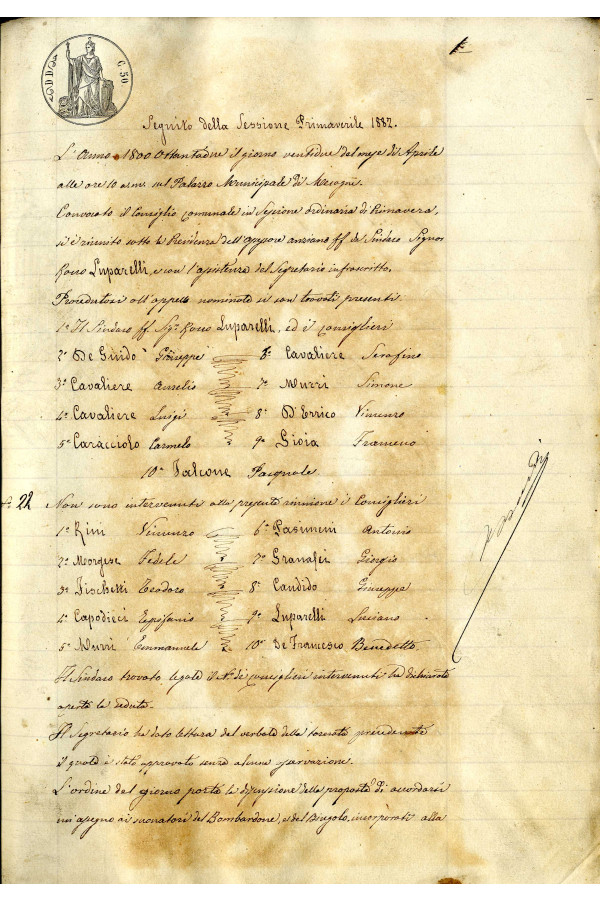 C. 50
Seguito della Sessione Primaverile 1882.
L'Anno 1800 Ottantadue il giorno ventidue del mese di Aprile
alle ore 10 a.m. sul Palazzo Municipale di Mesagne.
Convocato il Consiglio comunale in Sessione ordinaria di Primavera,
si è riunito sotto la Presidenza dell'assessore anziano ff da Sindaco Signor
Rocco Luparelli, e con l'assistenza del Segretario infrascritto.
Procedutosi all'appello nominale si son trovati presenti
1º Il Sindaco ff. Sigr. Rocco Luparelli, ed i consiglieri
2º De Guido Giuseppe 6º Cavaliere Serafino
3º Cavaliere Aurelio 7º Murri Simone
4º Cavaliere Luigi 8º D'Errico Vincenzo
5º Caracciolo Carmelo 9º Gioia Francesco
10º Falcone Pasquale
Nº 22 Non sono intervenuti alla presente riunione i Consiglieri
1º Rini Vincenzo 6º Pasimeni Antonio
2º Morgese Fedele 7º Granafei Giorgio
3º Fischetti Teodoro 8º Candido Giuseppe
4º Capodieci Epifanio 9º Luparelli Luciano
5º Murri Emmanuele 10º De Francesco Benedetto
Il Sindaco trovato legale il Nº de' consiglieri intervenuti ha dichiarato
aperta la seduta.
Il Segretario ha dato lettura del verbale della tornata precedente
il quale è stato approvato senza alcuna
L'ordine del giorno porta la discussione della proposta di accordarsi
un assegno ai suonatori del Bombardone, e del Bugolo, incorporati alla